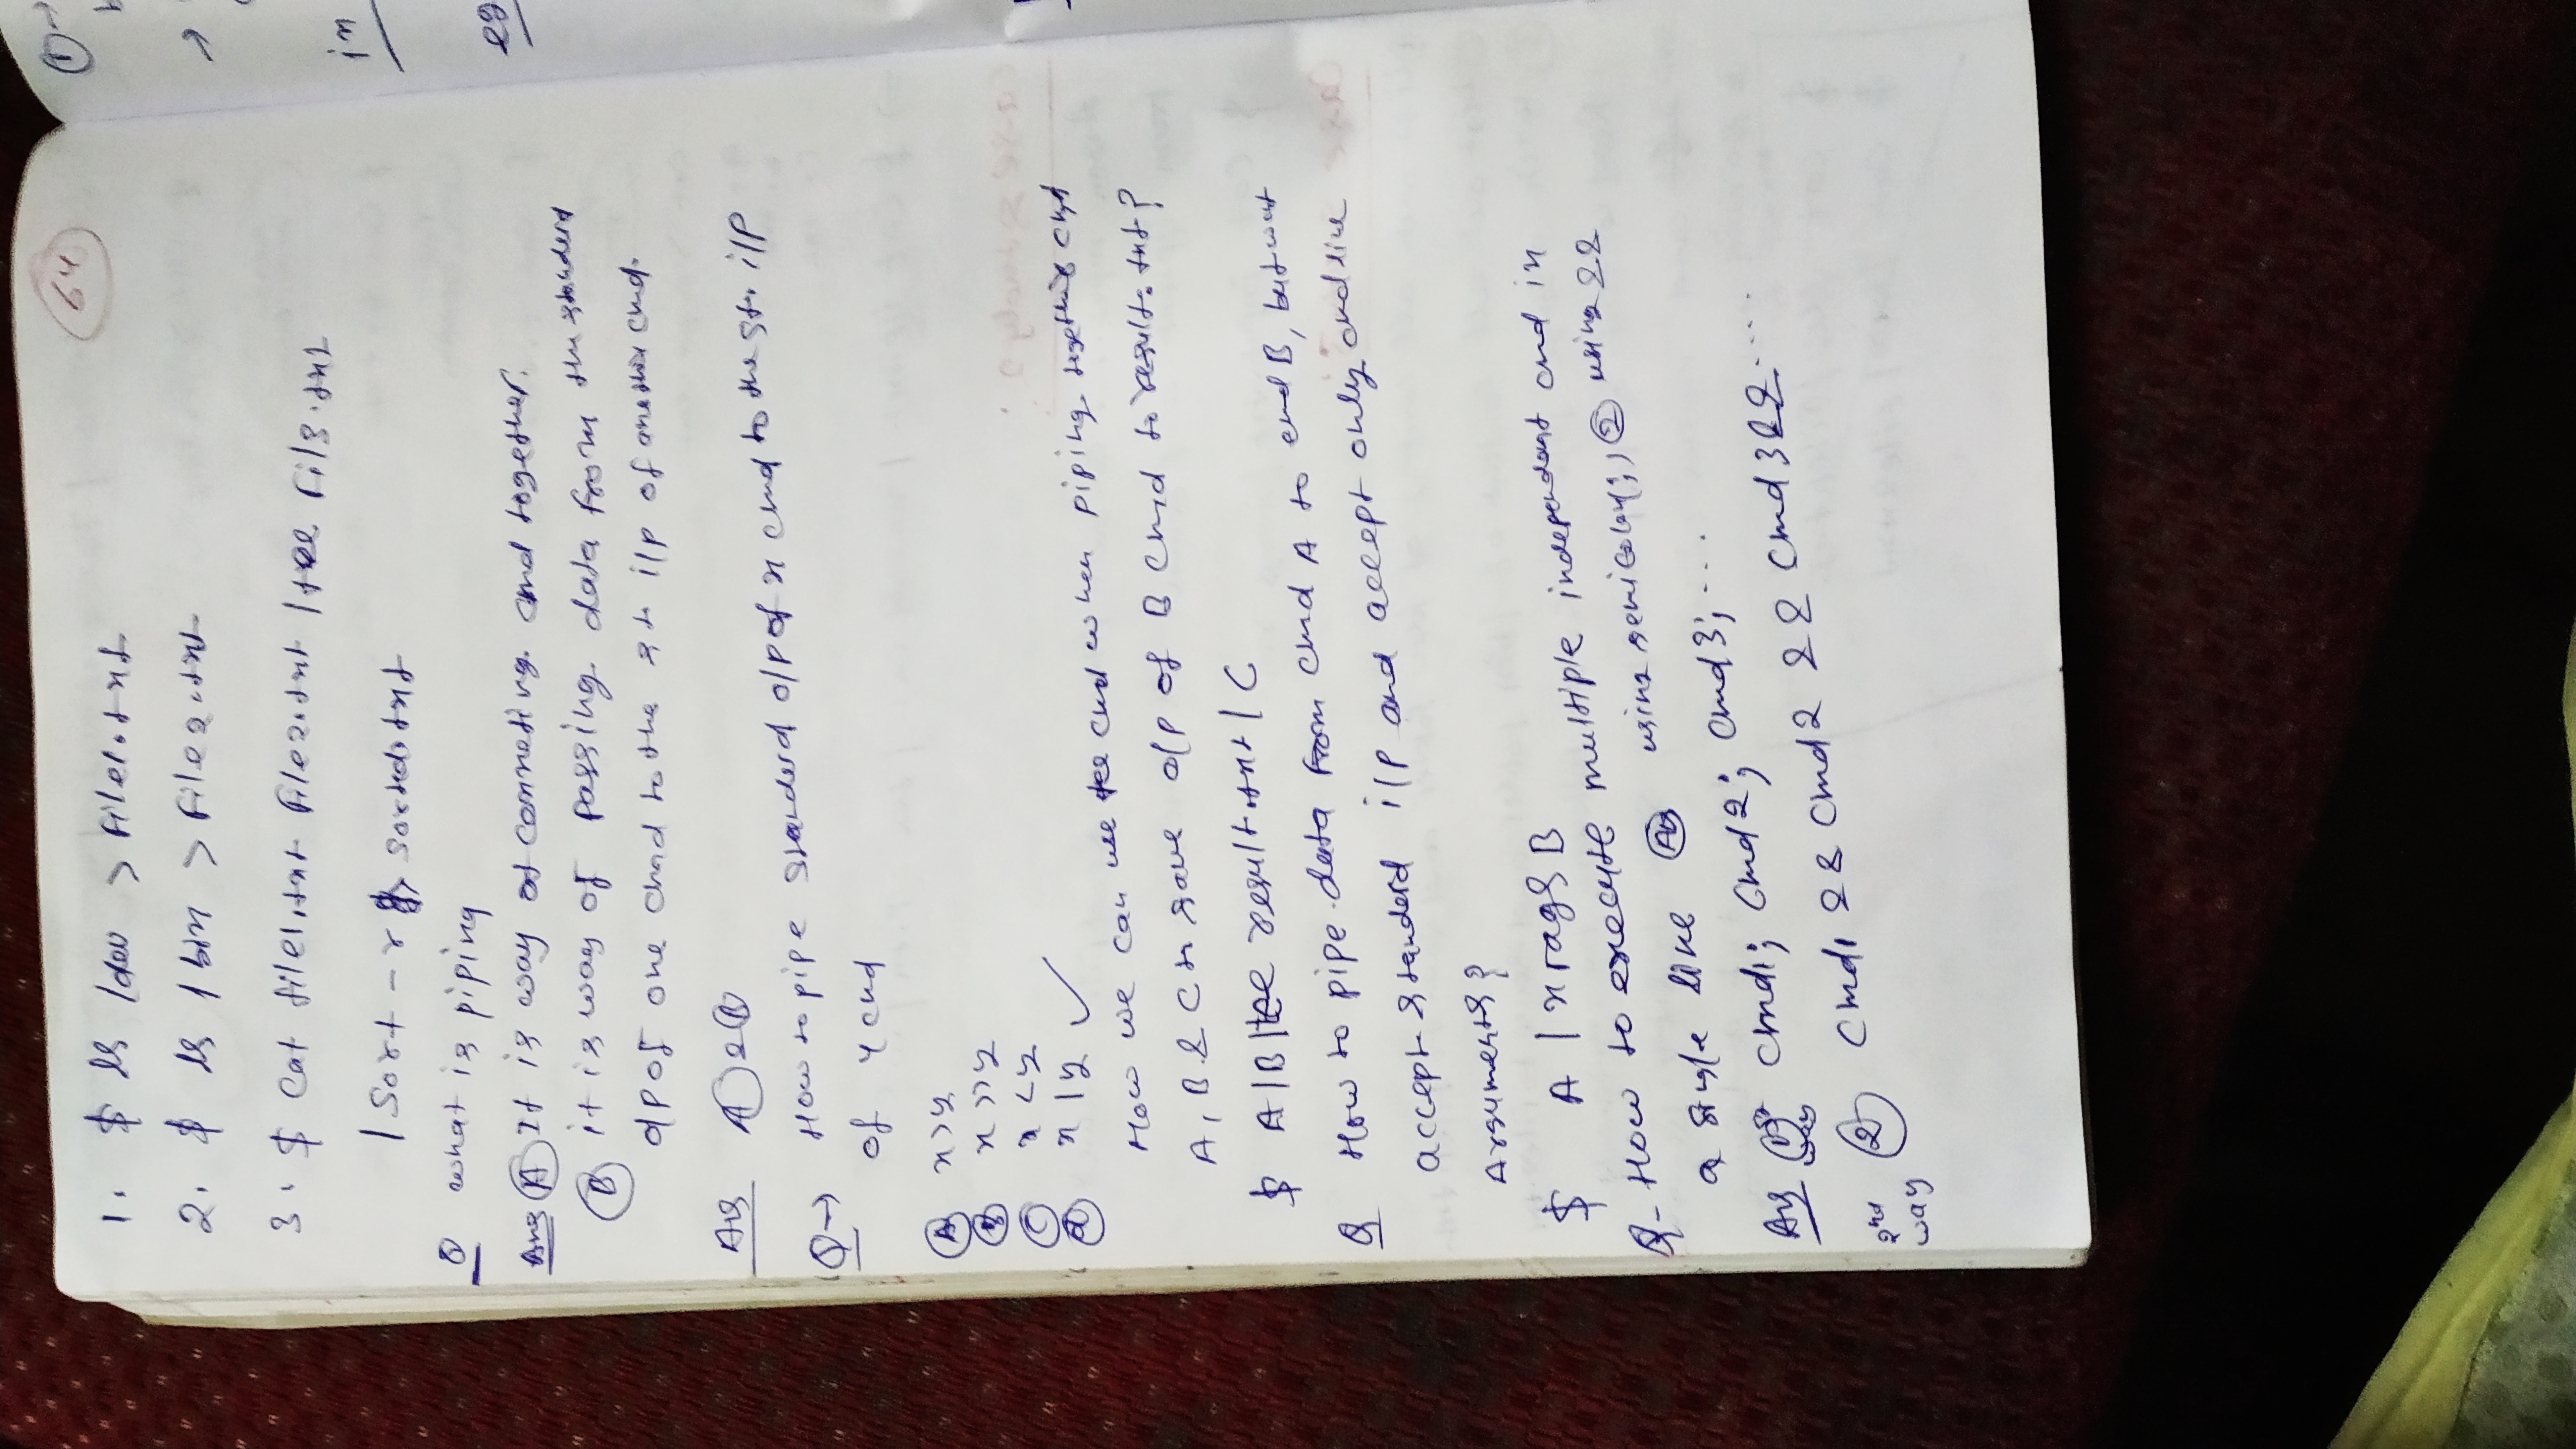 64
1. $ ls /dev > file1.txt
2. $ ls /bin > file2.txt
3. $ cat file1.txt file2.txt | tee file.txt
| sort -r sorted.txt
Q what is piping
Ans (A) It is way of connecting cmd together.
(B) it is way of passing data from the standerd
o/p of one cmd to the st i/p of another cmd.
Ans A & B
Q → How to pipe standerd o/p of x cmd to the st. i/p
of y cmd
(A) x > y
(B) x >> y
(C) x < y
(D) x | y ✓
How we can use tee cmd when piping together cmd
A, B & C to save o/p of B cmd to result.txt?
$ A | B | tee result.txt | C
Q How to pipe data from cmd A to cmd B, but want
accept standerd i/p and accept only cmd line
Arguments?
$ A | xrags B
Q - How to execute multiple independant cmd in
a single line (A) using semicolon; , (2) using &&
Ans 1st way cmd1; cmd2; cmd3; ...
2nd way (2) cmd1 && cmd2 && cmd3 && ...
(1)
→
in
eg